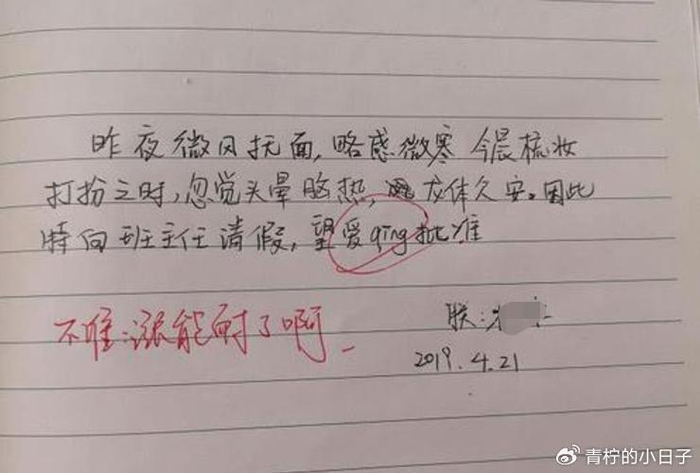 昨夜微风抚面,略感微寒 今晨梳妆
打扮之时,忽觉头晕脑热,龙体久安。因此
特向班主任请假,望爱qing批准
不准:涨能耐了啊
朕:
2019.4.21
@青柠的小日子